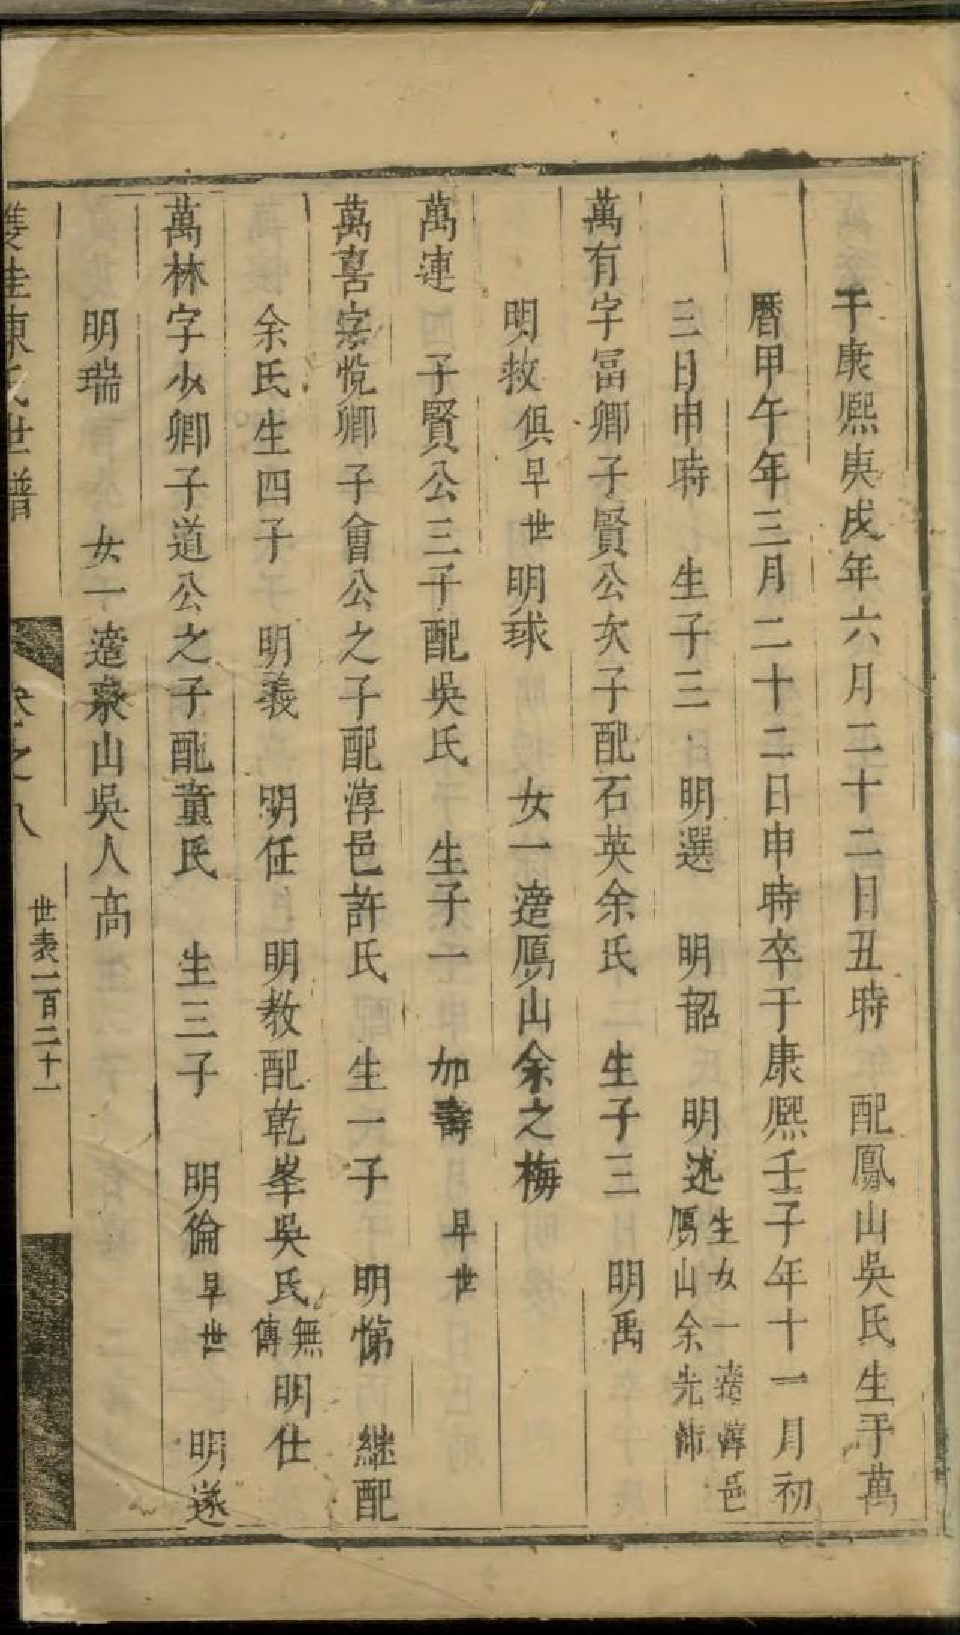 于康熙庚戌年六月二十二日丑時　配鳳山吳氏生于萬
曆甲午年三月二十二日申時卒于康熙壬子年十一月初
三日申時　生子三　明選　明韶　明述生女一適淳邑鳫山余先沛
萬有字冨卿子賢公次子配石英余氏　生子三　明禹
明救俱早世明球　女一適鳫山余之梅
萬連　子賢公三子配吳氏　生子一　加壽　早世
萬喜字悅卿子會公之子配淳邑許氏　生一子　明悌　継配
余氏生四子　明義　明任　明教配乾峯吳氏無傳明仕
萬林字少卿子道公之子配童氏　生三子　明倫早世　明遂
明瑞　女一適泉山吳人高
雙桂陳氏世譜　卷之八　世表一百二十一